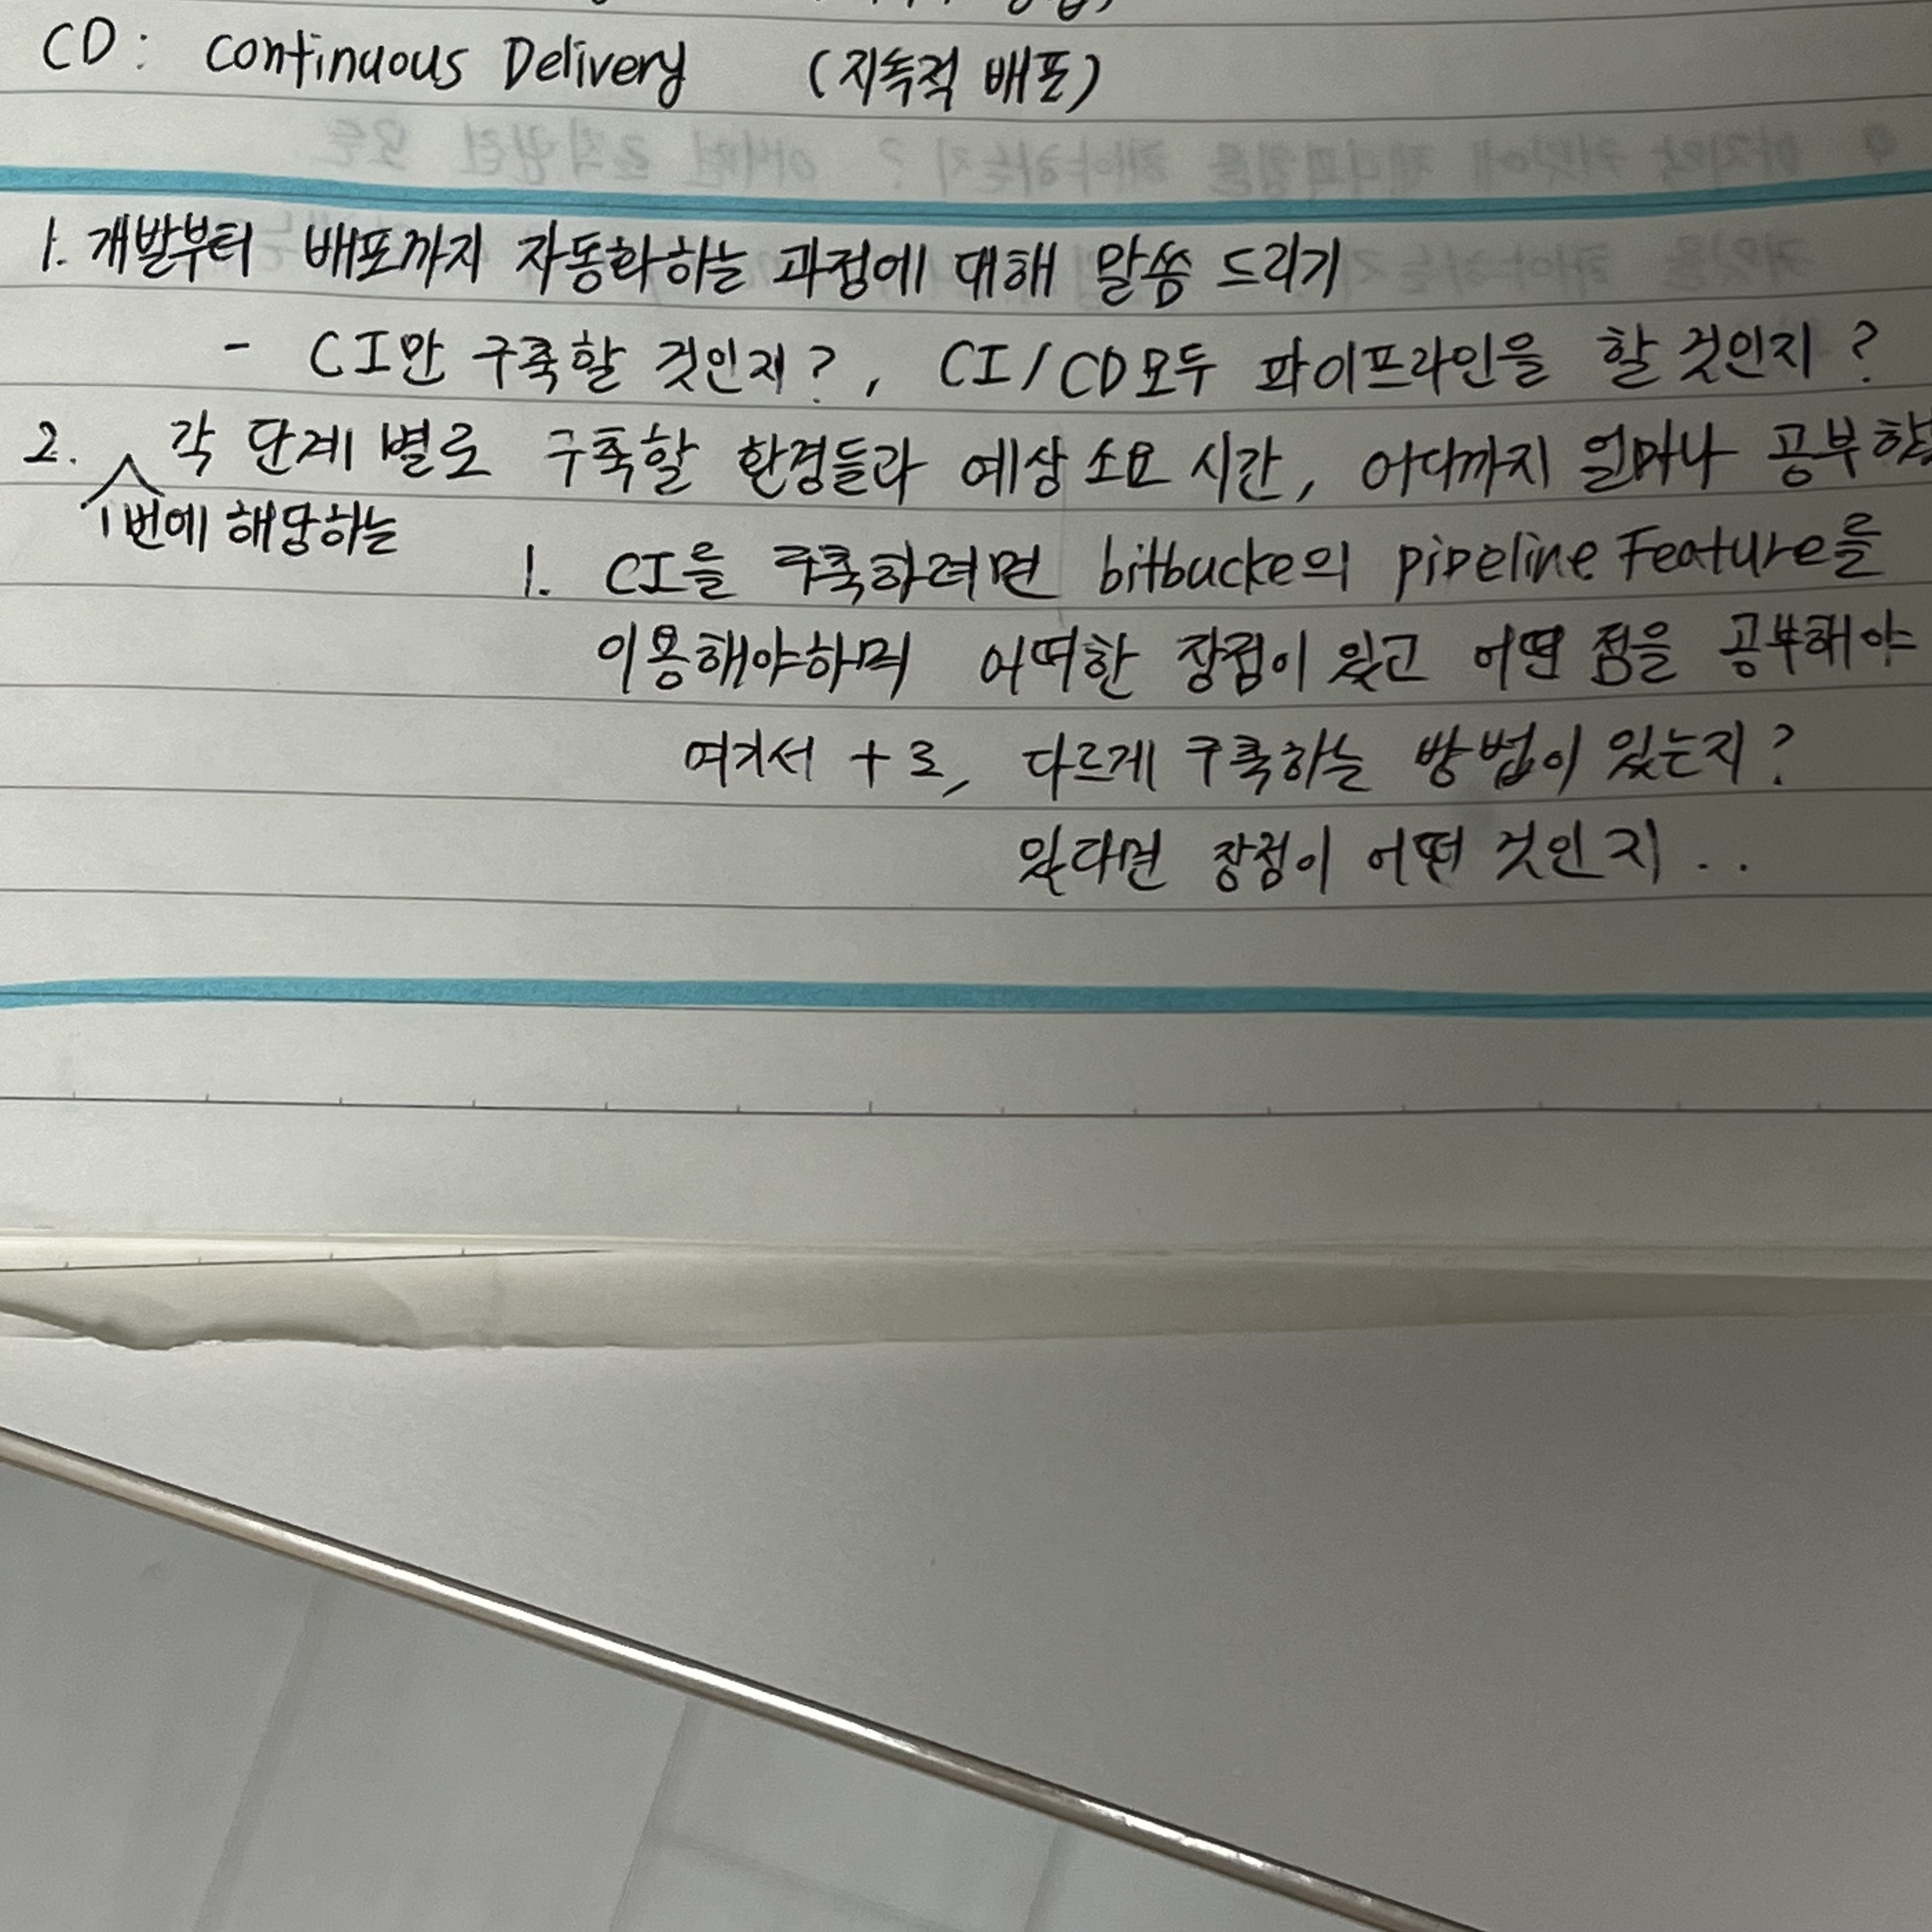 CD: Continuous Delivery (지속적 배포)
1. 개발부터 배포까지 자동화하는 과정에 대해 말씀 드리기
- CI만 구축할 것인지?, CI/CD모두 파이프라인을 할 것인지?
2. 각 단계 별로 구축할 환경들과 예상 소요 시간, 어디까지 얼마나 공부
1번에 해당하는
1. CI을 구축하려면 bitbucke의 pipeline Feature를
이용해야하며 어떠한 장점이 있고 어떤 점을 공부해야
여기서 +로, 다르게 구축하는 방법이 있는지?
있다면 장점이 어떤 것인지..